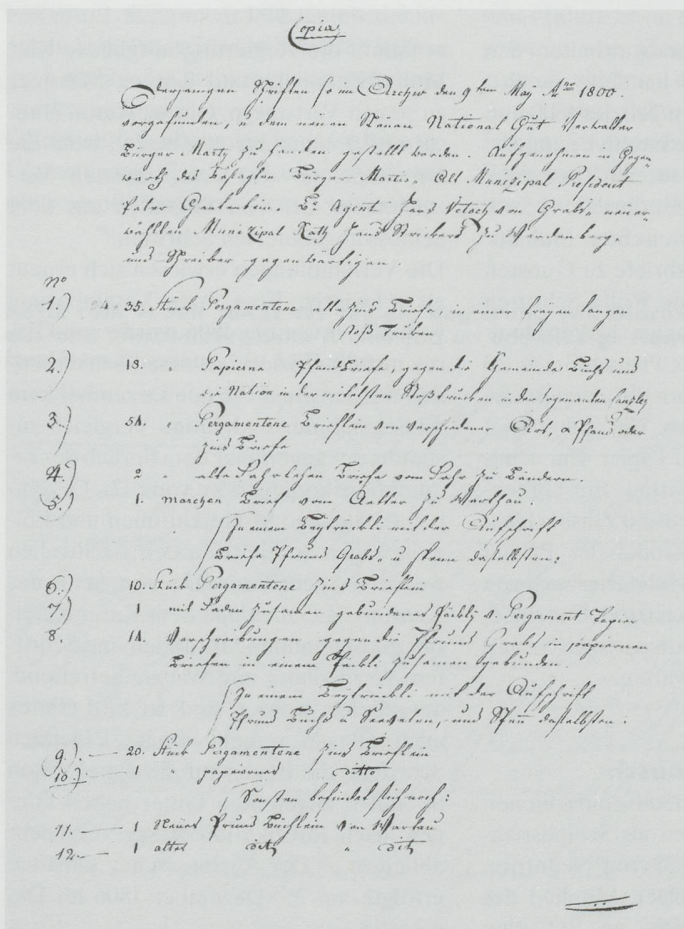 Copia
Derjenigen Schriften so im Archiv den 9ten Maÿ Ano 1800.
vorgefunden, u dem neuen National Gut Verwalter
Bürger Marty zu handen gestellt worden. Aufgenohmen in Gegen
warth des Bürger Alt Munizipal President
Peter Gantenbein. Br Agent Hans Vetsch von Grabs neuer
wählten Munizipal Rath Hans Strickers zu Werdenberg
und Schreiber gegenwärtigen.
No
1.) 35. Stück Pergamentene alte Zins Briefe, in einer langen
Truken
2.) 18. " Papierne Pfand Briefe, gegen die Gemeinde Buchs und
die Nation in der in der sogenanten
3.) 54. Pergamentene Brieflein von verschiedener Art, a Pfand oder
Zins Briefe
4.) 2 alte Fahr Lehen Briefe vom Fahr zu Bendern.
5.) 1. Marchen Brief vom zu Warthau.
In einem mit der Aufschrift
Briefe Pfrund Grabs u daselbsten:
6.) 10. Stück Pergamentene Zins Brieflein
7.) 1 mit Faden zusamen gebundenes v. Pergament Papier
8. 14. Verschreibungen gegen die Pfrund Grabs in papiernen
Briefen in einem zusamen gebunden.
In einem mit der Aufschrift
Pfrund Buchs u Sevelen, und daselbsten:
9.) — 20. Stück Pergamentene Zins Brieflein
10.) — 1 " papiernes ditto
Sonsten befindet sich noch:
11. — 1 Neues Büchlein von Wartau
12 — 1 altes dito " dito